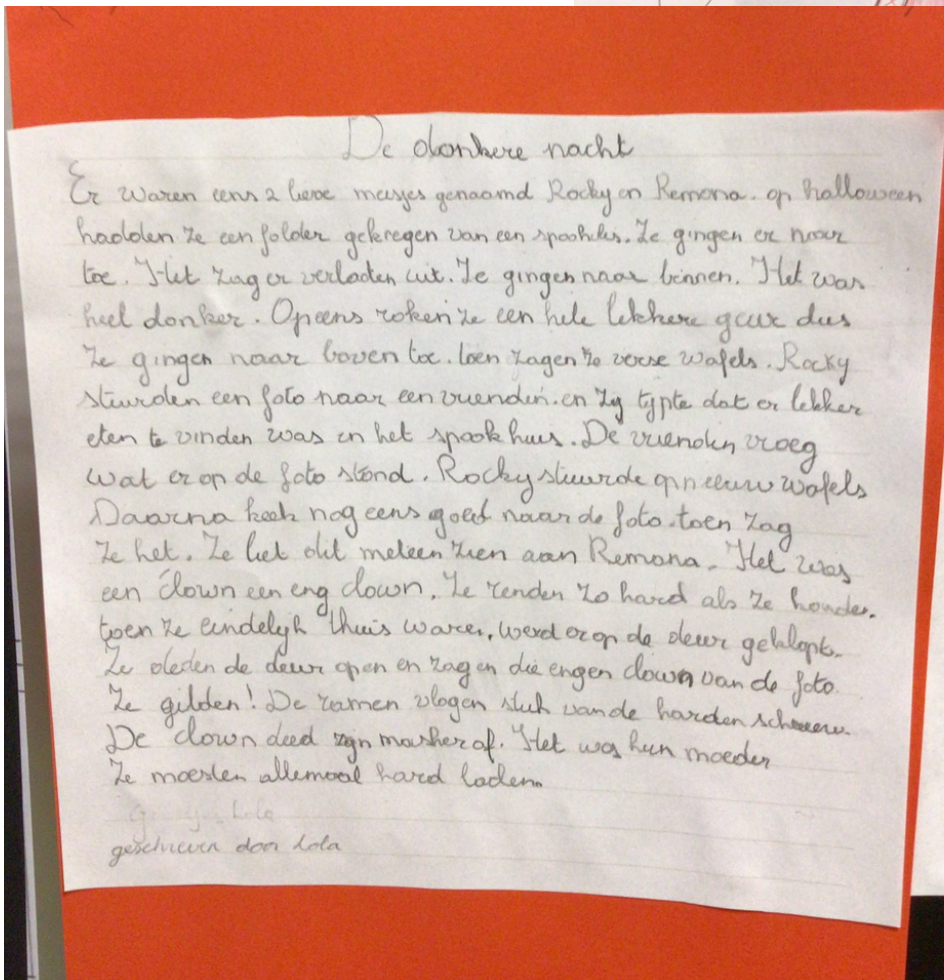 De donkere nacht
Er waren eens 2 lieve meisjes genaamd Rocky en Remona. op halloween
hadden ze een folder gekregen van een spookhuis. Ze gingen er naar
toe. Het zag er verlaten uit. Ze gingen naar binnen. Het was
heel donker. Opeens roken ze een hele lekkere geur dus
ze gingen naar boven toe. toen zagen ze verse wafels. Rocky
stuurden een foto naar een vriendin. en zij typte dat er lekker
eten te vinden was in het spook huis. De vriendin vroeg
wat er op de foto stond. Rocky stuurde opnieuw wafels
Daarna keek nog eens goed naar de foto. toen zag
ze het. Ze liet dit meteen zien aan Remona. Het was
een clown een eng clown. Ze renden zo hard als ze konden.
toen ze eindelijk thuis waren, werd er op de deur geklopt.
Ze deden de deur open en zagen die engen clown van de foto
Ze gilden! De ramen vlogen stuk van de harden schreeuw.
De clown deed zijn masker af. Het was hun moeder
Ze moesten allemaal hard lachen.
geschreven door Lola